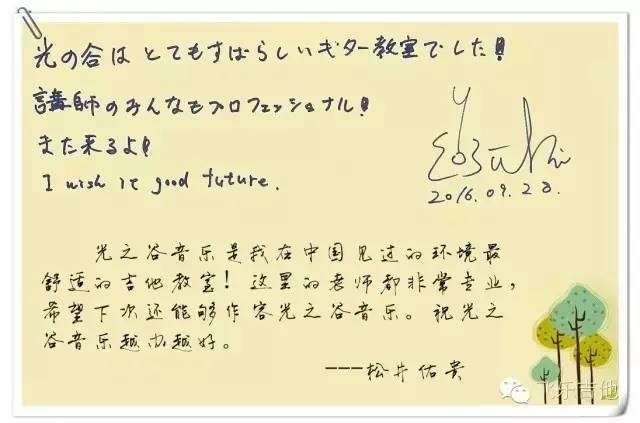 光の谷は とてもすばらしいギター教室でした!
講師のみんなもプロフェッショナル!
また来るよ!
I wish it good future.
2016.09.28.
光之谷音乐是我在中国见过的环境最
舒适的吉他教室！这里的老师都非常专业，
希望下次还能够作客光之谷音乐。祝光之
谷音乐越办越好。
---松井佑贵
飞乐吉他